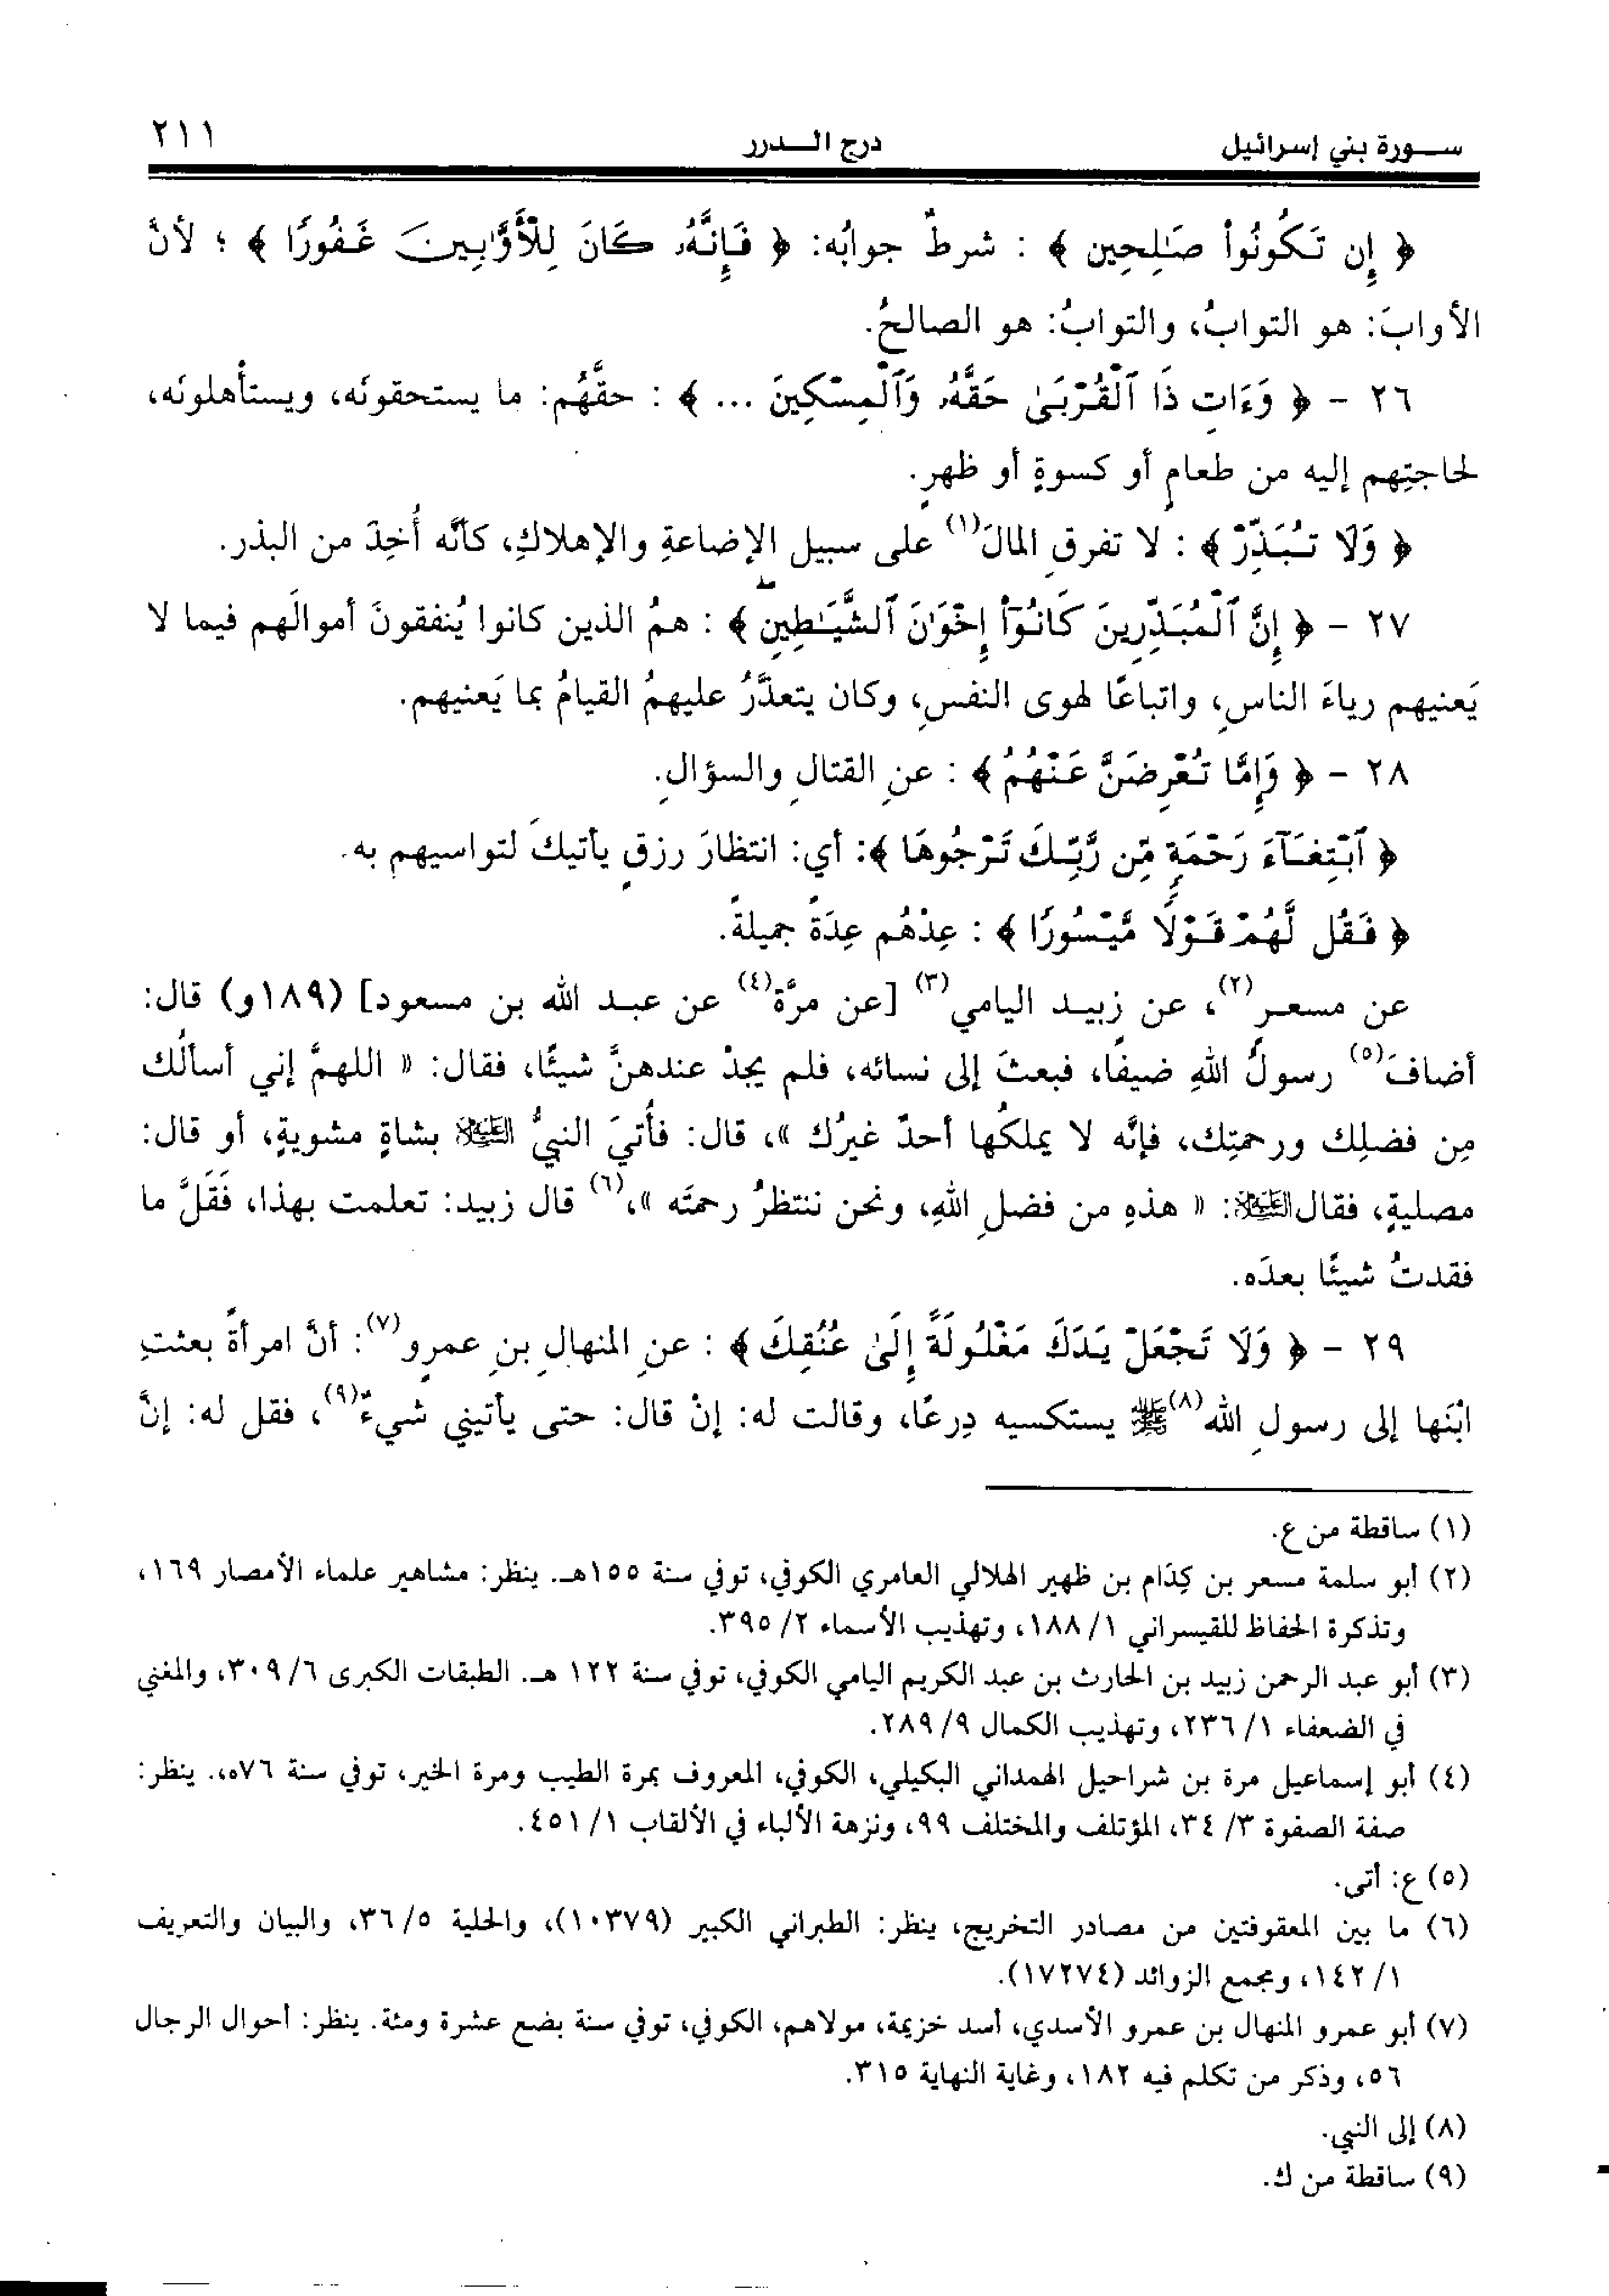 سـورة بني إسرائيل درج الـدرر ٢١١
﴿ إِن تَكُونُواْ صَـٰلِحِين ﴾ : شرطٌ جوابُه: ﴿ فَإِنَّهُۥ كَانَ لِلْأَوَّٰبِينَ غَفُورًا ﴾ ؛ لأنَّ
الأوابَ: هو التوابُ، والتوابُ: هو الصالحُ.
٢٦ - ﴿ وَءَاتِ ذَا ٱلْقُرْبَىٰ حَقَّهُۥ وَٱلْمِسْكِينَ ... ﴾ : حقَّهُم: ما يستحقونَه، ويستأهلونَه،
لحاجتِهم إليه من طعامٍ أو كسوةٍ أو ظهرٍ.
﴿ وَلَا تُبَذِّرْ ﴾ : لا تفرقِ المالَ(١) على سبيل الإضاعةِ والإهلاكِ، كأنَّه أُخِذَ من البذر.
٢٧ - ﴿ إِنَّ ٱلْمُبَذِّرِينَ كَانُوٓاْ إِخْوَٰنَ ٱلشَّيَـٰطِينِۖ ﴾ : همُ الذين كانوا يُنفقونَ أموالَهم فيما لا
يَعنيهم رياءَ الناسِ، واتباعًا لهوى النفسِ، وكان يتعذَّرُ عليهمُ القيامُ بما يَعنيهم.
٢٨ - ﴿ وَإِمَّا تُعْرِضَنَّ عَنْهُمُ ﴾ : عنِ القتالِ والسؤالِ.
﴿ ٱبْتِغَآءَ رَحْمَةٍ مِّن رَّبِّكَ تَرْجُوهَا ﴾: أي: انتظارَ رزقٍ يأتيكَ لتواسيهم به.
﴿ فَقُل لَّهُمْ قَوْلًا مَّيْسُورًا ﴾ : عِدْهُم عِدَةً جميلةً.
عن مسعـرٍ(٢)، عن زبيـدٍ اليامي(٣) [عن مرَّة(٤) عن عبـد الله بن مسعود] (١٨٩و) قال:
أضافَ(٥) رسولُ اللهِ ضيفًا، فبعثَ إلى نسائه، فلم يجدْ عندهنَّ شيئًا، فقال: « اللهمَّ إني أسألُك
مِن فضلِك ورحمتِك، فإنَّه لا يملكُها أحدٌ غيرُك »، قال: فأُتيَ النبيُّ الطَّيْخِلا بشاةٍ مشويةٍ، أو قال:
مصليةٍ، فقال : « هذهِ من فضلِ اللهِ، ونحن ننتظرُ رحمتَه »،(٦) قال زبيد: تعلمت بهذا، فَقَلَّ ما
فقدتُ شيئًا بعدَه.
٢٩ - ﴿ وَلَا تَجْعَلْ يَدَكَ مَغْلُولَةً إِلَىٰ عُنُقِكَ ﴾ : عنِ المنهالِ بنِ عمرٍو(٧): أنَّ امرأةً بعثتِ
ابْنَها إلى رسولِ الله(٨)ﷺ يستكسيه دِرعًا، وقالت له: إنْ قال: حتى يأتيني شيءٌ(٩)، فقل له: إنَّ
(١) ساقطة من ع.
(٢) أبو سلمة مسعر بن كِدَام بن ظهير الهلالي العامري الكوفي، توفي سنة ١٥٥هـ. ينظر: مشاهير علماء الأمصار ١٦٩،
وتذكرة الحفاظ للقيسراني ١/ ١٨٨، وتهذيب الأسماء ٢/ ٣٩٥.
(٣) أبو عبد الرحمن زبيد بن الحارث بن عبد الكريم اليامي الكوفي، توفي سنة ١٢٢ هـ. الطبقات الكبرى ٦/ ٣٠٩، والمغني
في الضعفاء ١/ ٢٣٦، وتهذيب الكمال ٩/ ٢٨٩.
(٤) أبو إسماعيل مرة بن شراحيل الهمداني البكيلي، الكوفي، المعروف بمرة الطيب ومرة الخير، توفي سنة ٧٦ه،. ينظر:
صفة الصفوة ٣/ ٣٤، المؤتلف والمختلف ٩٩، ونزهة الألباء في الألقاب ١/ ٤٥١.
(٥) ع: أتى.
(٦) ما بين المعقوفتين من مصادر التخريج، ينظر: الطبراني الكبير (١٠٣٧٩)، والحلية ٥/ ٣٦، والبيان والتعريف
١/ ١٤٢، ومجمع الزوائد (١٧٢٧٤).
(٧) أبو عمرو المنهال بن عمرو الأسدي، أسد خزيمة، مولاهم، الكوفي، توفي سنة بضع عشرة ومئة. ينظر: أحوال الرجال
٥٦، وذكر من تكلم فيه ١٨٢، وغاية النهاية ٣١٥.
(٨) إلى النبي.
(٩) ساقطة من ك.